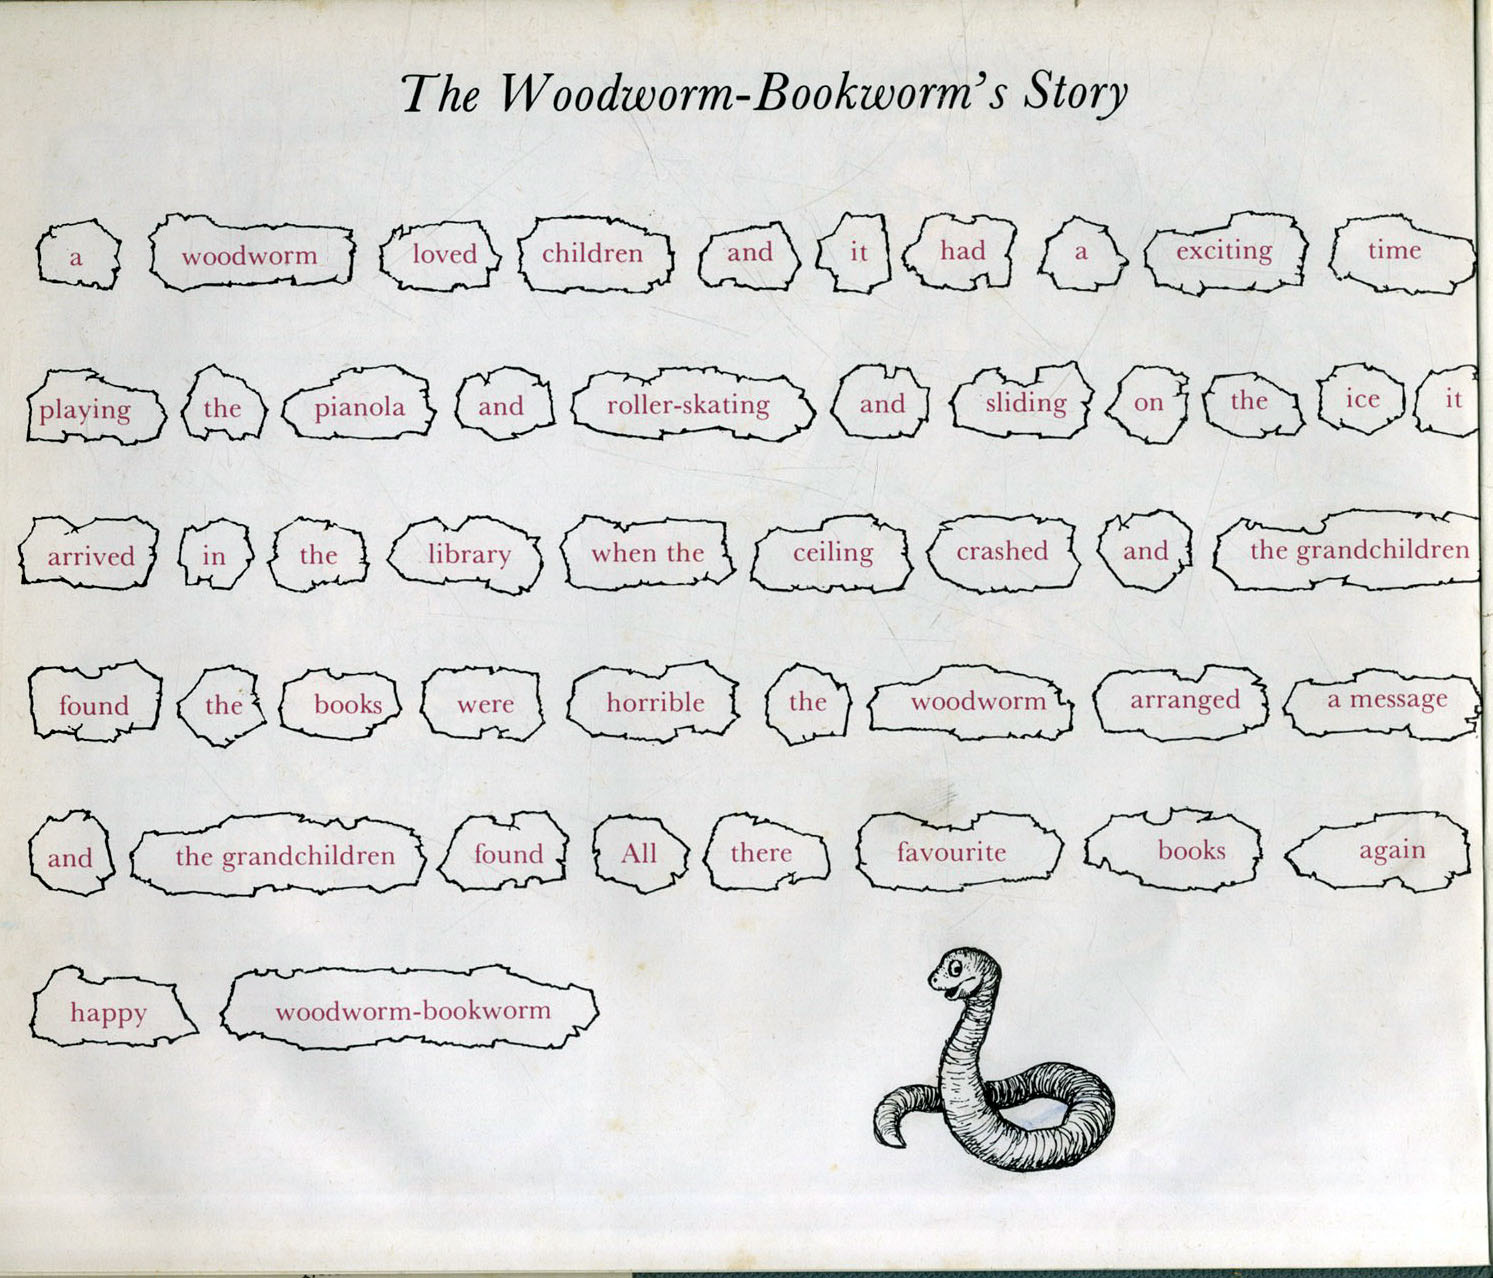 The Woodworm-Bookworm's Story
a woodworm loved children and it had a exciting time
playing the pianola and roller-skating and sliding on the ice it
arrived in the library when the ceiling crashed and the grandchildren
found the books were horrible the woodworm arranged a message
and the grandchildren found All there favourite books again
happy woodworm-bookworm